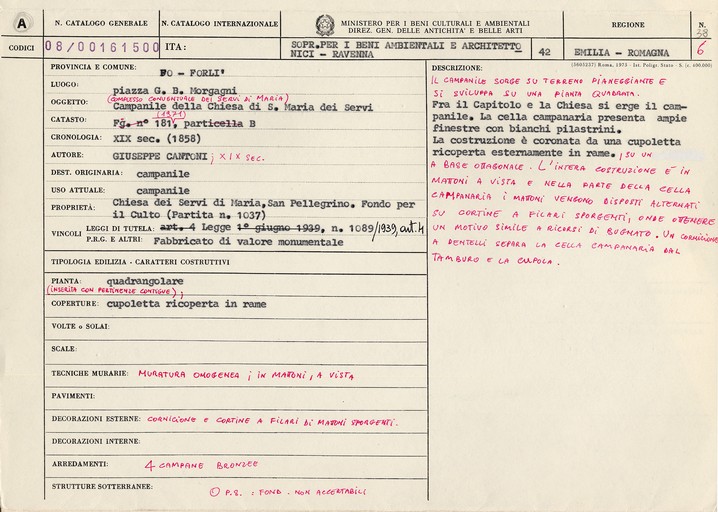 A
N. CATALOGO GENERALE
N. CATALOGO INTERNAZIONALE
MINISTERO PER I BENI CULTURALI E AMBIENTALI
DIREZ. GEN. DELLE ANTICHITA' E BELLE ARTI
REGIONE
N.
38
CODICI
08/00161500
ITA:
SOPR.PER I BENI AMBIENTALI E ARCHITETTO
NICI - RAVENNA
42
EMILIA - ROMAGNA
6
(5603337) Roma, 1975 - Ist. Poligr. Stato - S. (c. 400.000)
PROVINCIA E COMUNE:
FO - FORLI'
LUOGO:
piazza G. B. Morgagni
(COMPLESSO CONVENTUALE DEI SERVI DI MARIA)
OGGETTO: Campanile della Chiesa di S. Maria dei Servi
(1971)
CATASTO: Fg. n° 181, particella B
CRONOLOGIA: XIX sec. (1858)
AUTORE: GIUSEPPE CANTONI; XIX SEC.
DEST. ORIGINARIA: campanile
USO ATTUALE: campanile
PROPRIETÀ: Chiesa dei Servi di Maria,San Pellegrino. Fondo per
il Culto (Partita n. 1037)
VINCOLI LEGGI DI TUTELA: art. 4 Legge 1° giugno 1939, n. 1089/1939, art. 4
P.R.G. E ALTRI: Fabbricato di valore monumentale
TIPOLOGIA EDILIZIA - CARATTERI COSTRUTTIVI
PIANTA: quadrangolare
(INSERITA CON PERTINENZE CONTIGUE);
COPERTURE: cupoletta ricoperta in rame
VOLTE o SOLAI:
SCALE:
TECNICHE MURARIE: MURATURA OMOGENEA; IN MATTONI, A VISTA
PAVIMENTI:
DECORAZIONI ESTERNE: CORNICIONE E CORTINE A FILARI DI MATTONI SPORGENTI.
DECORAZIONI INTERNE:
ARREDAMENTI: 4 CAMPANE BRONZEE
STRUTTURE SOTTERRANEE:
P.S. : FOND. NON ACCERTABILI
DESCRIZIONE:
IL CAMPANILE SORGE SU TERRENO PIANEGGIANTE E
SI SVILUPPA SU UNA PIANTA QUADRATA.
Fra il Capitolo e la Chiesa si erge il cam-
panile. La cella campanaria presenta ampie
finestre con bianchi pilastrini.
La costruzione è coronata da una cupoletta
ricoperta esternamente in rame., SU UN
A BASE OTTAGONALE. L'INTERA COSTRUZIONE È IN
MATTONI A VISTA E NELLA PARTE DELLA CELLA
CAMPANARIA I MATTONI VENGONO DISPOSTI ALTERNATI
SU CORTINE A FILARI SPORGENTI, ONDE OTTENERE
UN MOTIVO SIMILE A RICORSI DI BUGNATO. UN CORNICIONE
A DENTELLI SEPARA LA CELLA CAMPANARIA DAL
TAMBURO E LA CUPOLA.